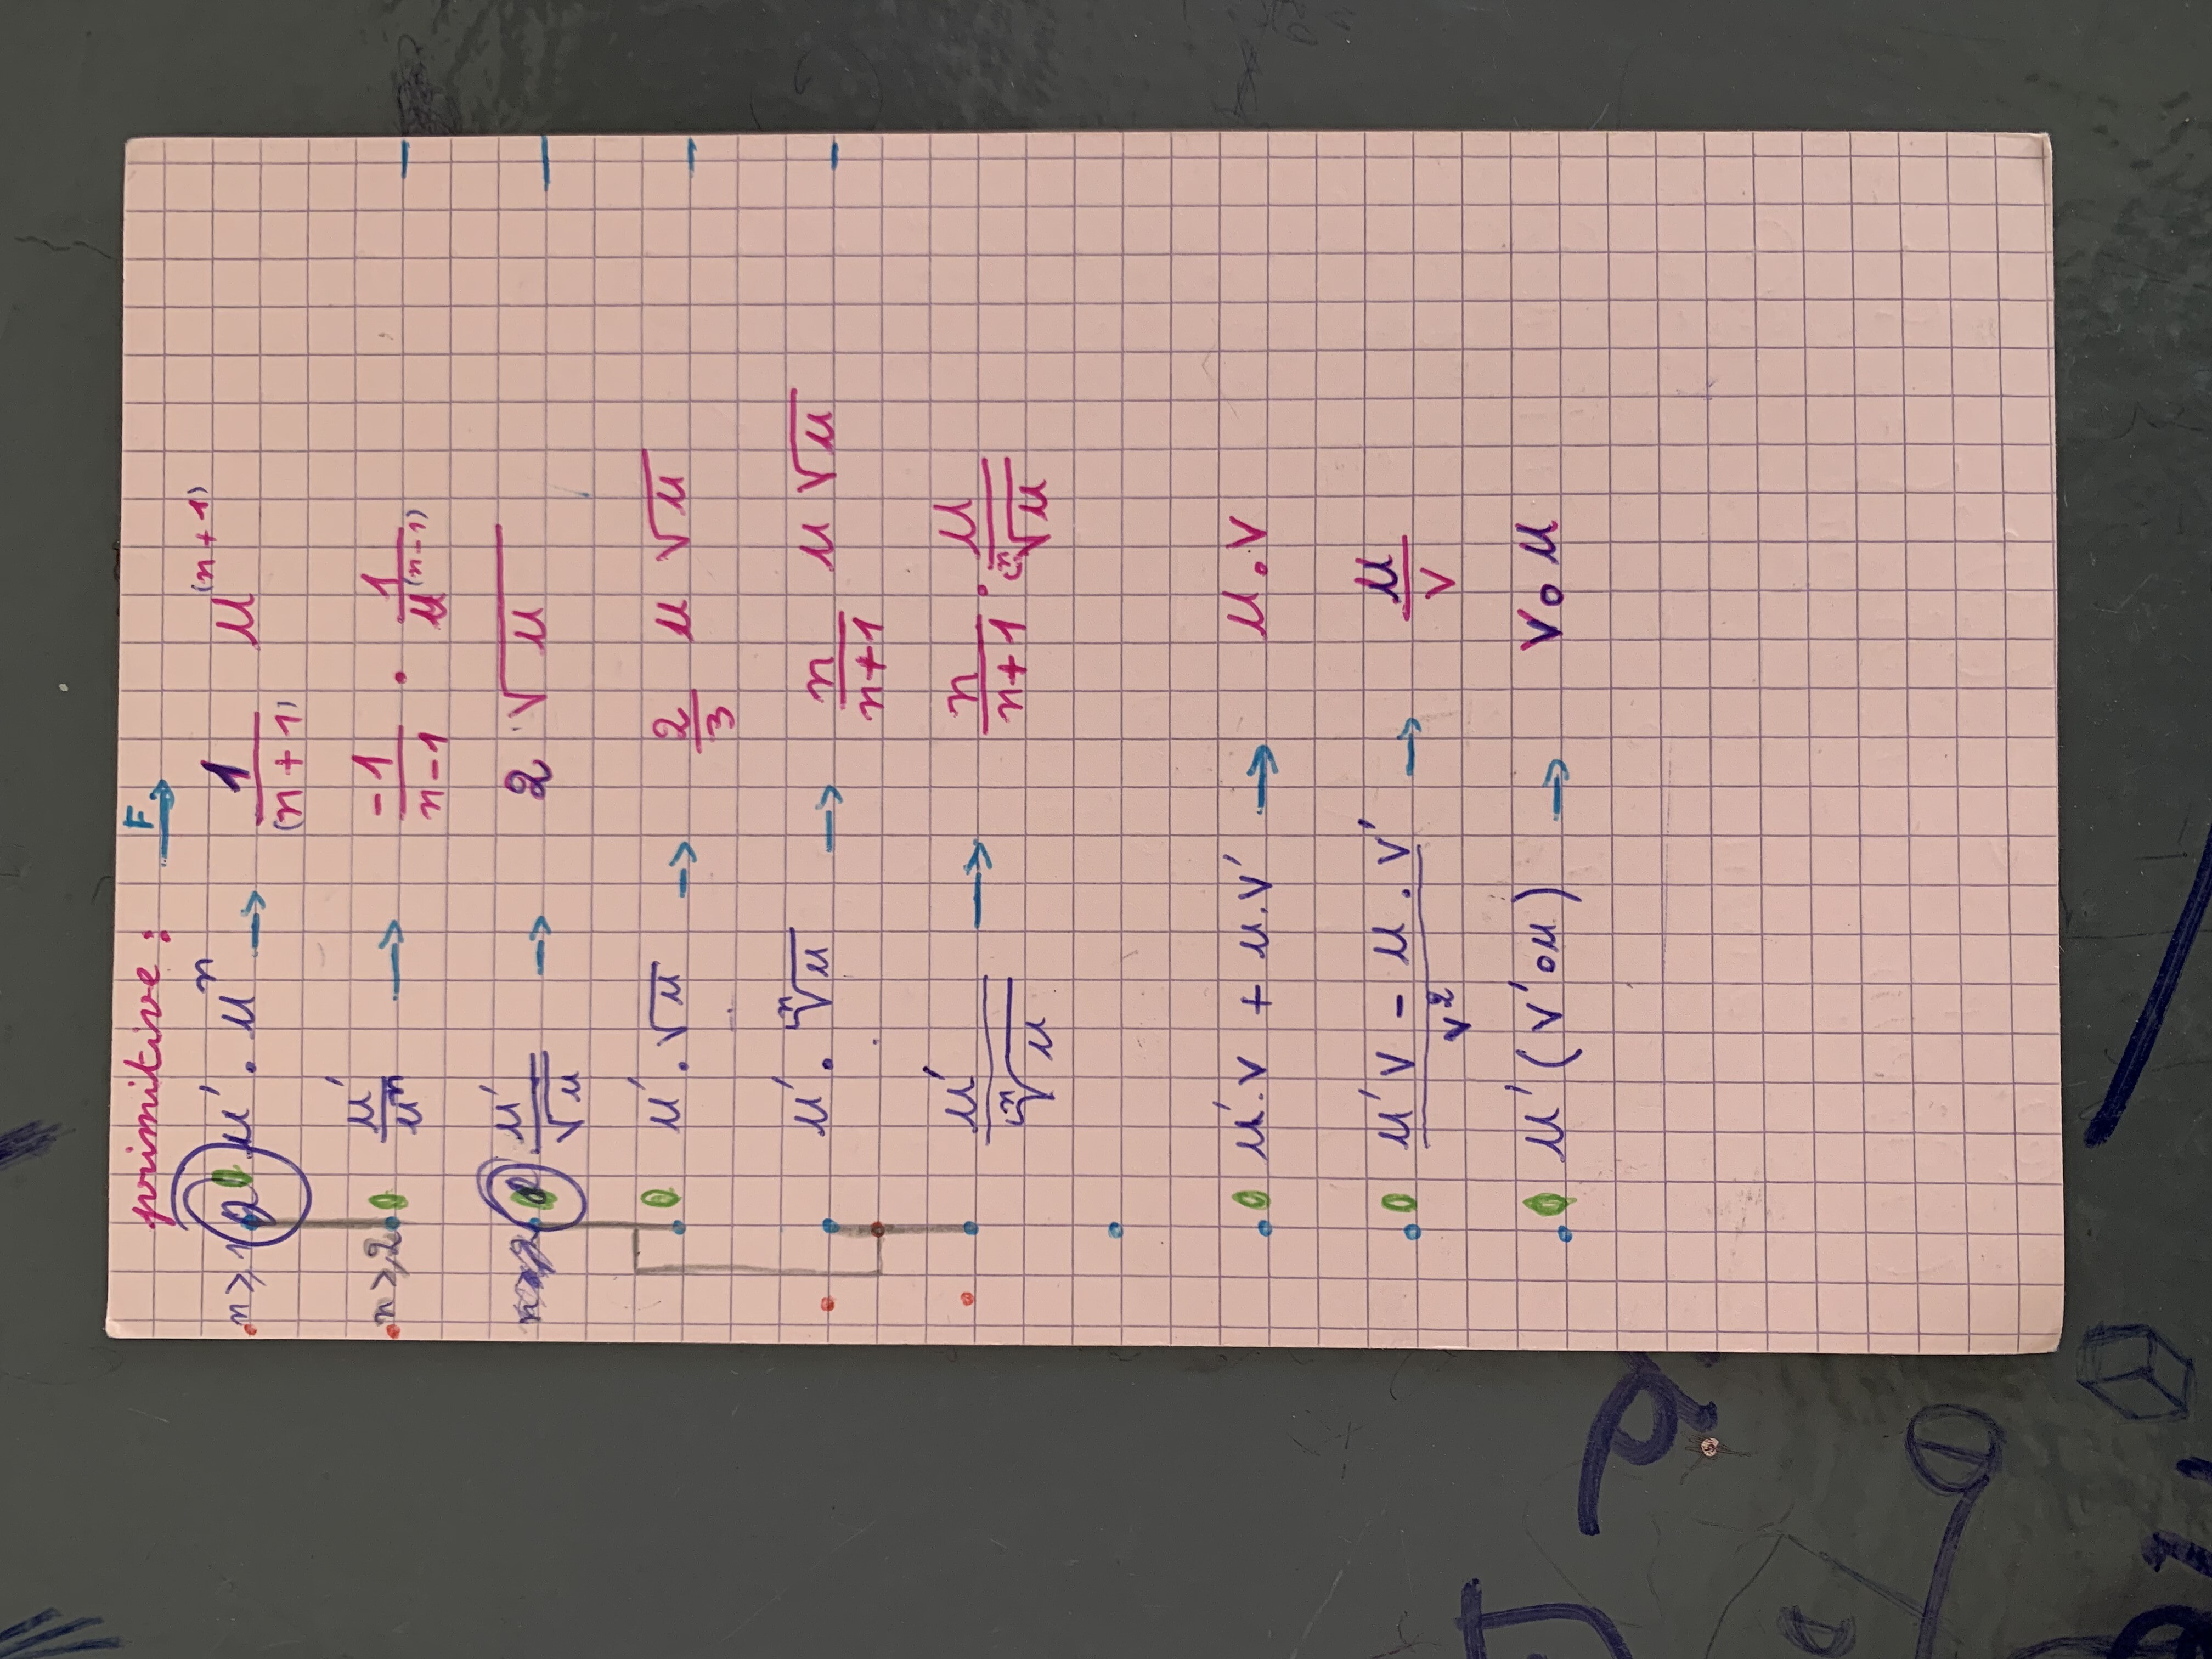 primitive : F→
n ⩾ 1 u' . uⁿ → 1/(n+1) u⁽ⁿ⁺¹⁾
n ⩾ 2 u'/uⁿ → -1/n-1 . 1/u⁽ⁿ⁻¹⁾
u'/√u → 2 √u
u' . √u → 2/3 u √u
u' . ⁿ√u → n/n+1 u √u
u'/ⁿ√u → n/n+1 . u/ⁿ√u
u'.v + u.v' → u.v
u'v - u . v'/v² → u/v
u' (v'∘u) → v∘u